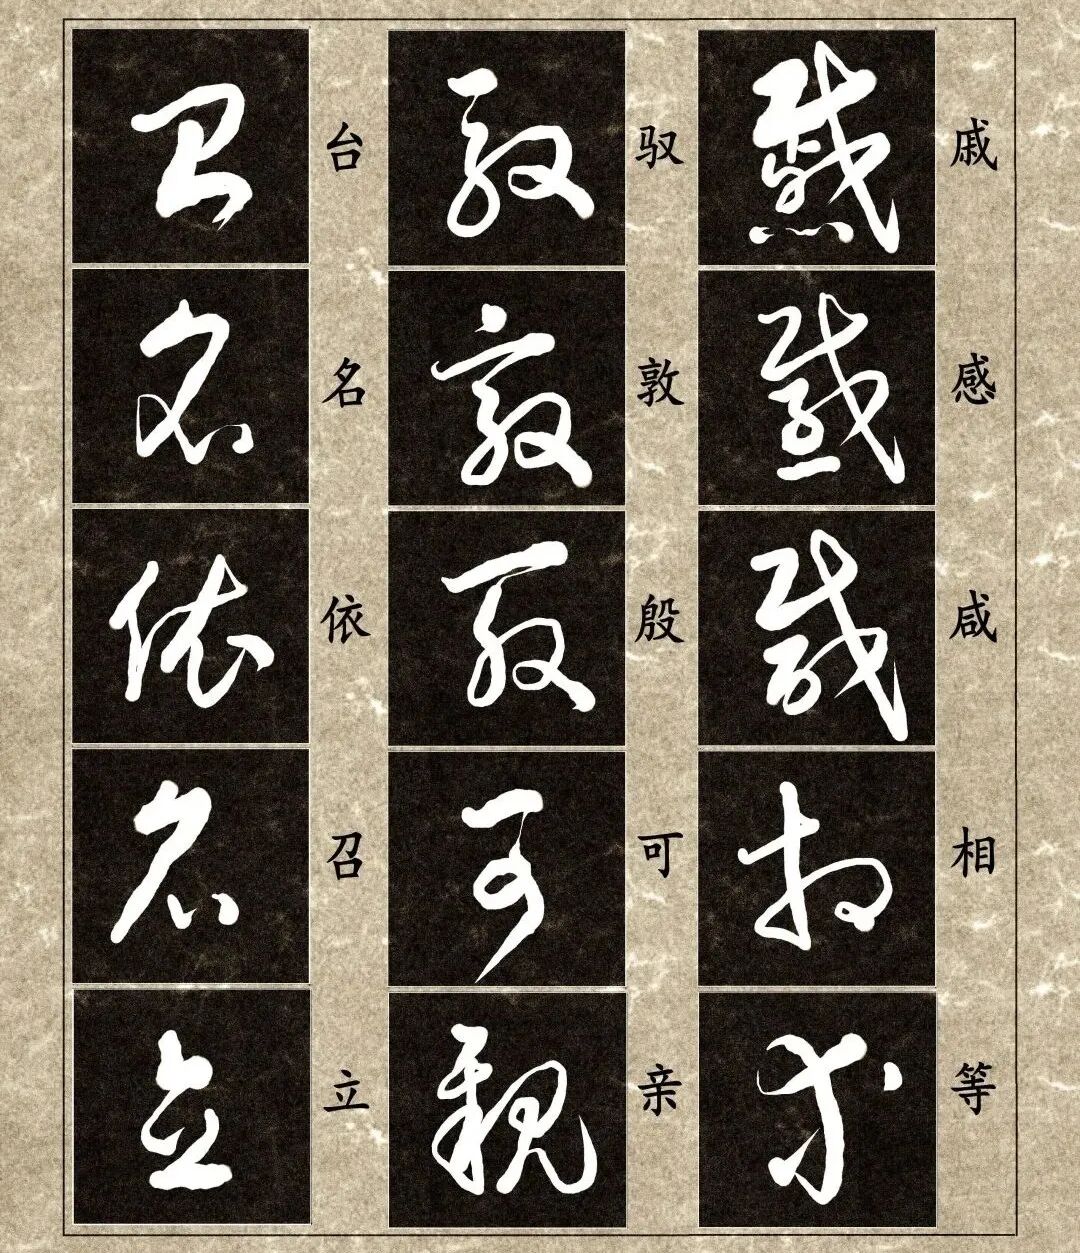 戚感咸相等
驭敦殷可亲
台名依召立